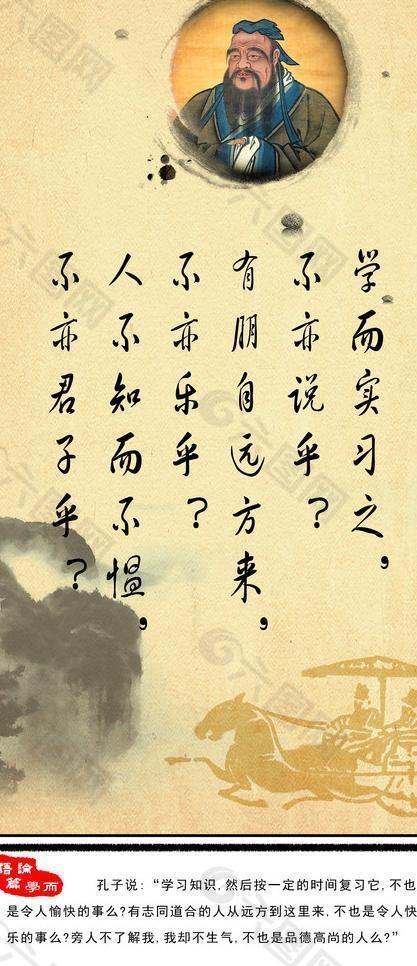 学而实习之,
不亦说乎?
有朋自远方来,
不亦乐乎?
人不知而不愠,
不亦君子乎?
論語
學而篇
孔子说:“学习知识,然后按一定的时间复习它,不也
是令人愉快的事么?有志同道合的人从远方到这里来,不也是令人快
乐的事么?旁人不了解我,我却不生气,不也是品德高尚的人么?”
六图网